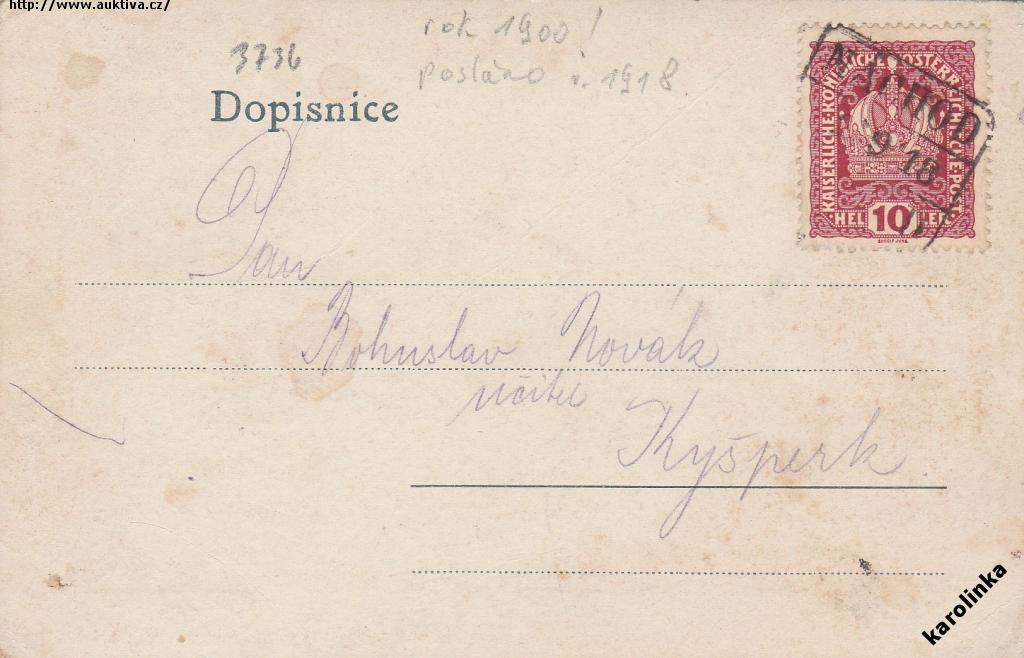 http://www.auktiva.cz/
rok 1900!
posláno r. 1918
3736
Dopisnice
KAISERLICHE KÖNIGLICHE ÖSTERREICHISCHE POST
HELLER 10 HELLER
NÁCHOD
9 18
Pan
Bohuslav Novák
učitel
Kyšperk.
karolinka